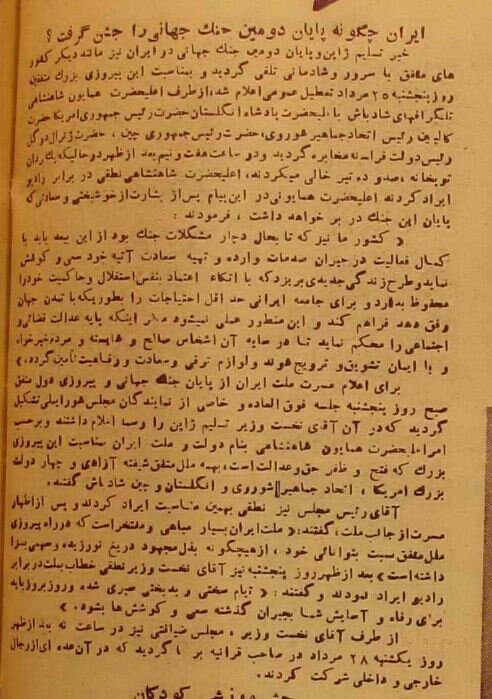 ایران چگونه پایان دومین جنك جهانی را جشن گرفت ؟
خبر تسلیم ژاپن و پایان دومین جنك جهانی در ایران نیز مانند دیگر کشور
های متفق با سرور و شادمانی تلقی گردید و بمناسبت این پیروزی بزرك متفقین
روز پنجشنبه ۲۵ مرداد تعطیل عمومی اعلام شد، از طرف اعلیحضرت همایون شاهنشاهی
تلگرافهای شادباش باعلیحضرت پادشاه انگلستان حضرت رئیس جمهوری امریکا حضرت
کالینین رئیس اتحاد جماهیر شوروی، حضرت رئیس جمهوری چین ، حضرت ژنرال دوگل
رئیس دولت فرانسه مخابره گردید و دو ساعت هفت و نیم بعد از ظهر در حالیکه یك ردان
توپخانه ، صد و ده تیر خالی میکردند، اعلیحضرت شاهنشاهی نطقی در برابر رادیو
ایراد کردند اعلیحضرت همایونی در این پیام پس از بشارت از خوشبختی و سعادتی که
پایان این جنك در بر خواهد داشت ، فرمودند :
« کشور ما نیز که تا بحال دچار مشکلات جنك بود از این ببعد باید با
کمال فعالیت در جبران صدمات وارده و تهیه سعادت آتیه خود سعی و کوشش
نماید و طرح زندگی جدیدی بریزد که با اتکاء اعتماد بنفس استقلال و حاکمیت خود را
محفوظ بدارد و برای جامعه ایرانی حداقل احتیاجات را بطوریکه با تمدن جهان
وفق دهد فراهم کند و این منظور عملی نمیشود مگر اینکه پایه عدالت قضائی و
اجتماعی را محکم نماید تا در سایه آن اشخاص صالح و شایسته و مردم خیرخواه
و با ایمان تشویق و ترویج شوند و لوازم ترقی و سعادت و رفاهیت تأمین گردد. »
برای اعلام مسرت ملت ایران از پایان جنك جهانی و پیروزی دول متفق
صبح روز پنجشنبه جلسه فوق العاده و خاصی از نمایندگان مجلس شورایملی تشکیل
گردید که در آن آقای نخست وزیر تسلیم ژاپن را رسماً اعلام داشتند و برحسب
امر اعلیحضرت همایون شاهنشاهی بنام دولت و ملت ایران بمناسبت این پیروزی
بزرك که فتح و ظفر حق و عدالت است، بهمه ملل متفق شیفته آزادی و چهار دولت
بزرك امریکا ، اتحاد جماهیر شوروی و انگلستان و چین شادباش گفتند.
آقای رئیس مجلس نیز نطقی بهمین مناسبت ایراد کردند و پس از اظهار
مسرت از جانب ملت، گفتند: « ملت ایران بسیار مباهی و مفتخر است که در راه پیروزی
ملل متفق نسبت بتوانائی خود ، از هیچگونه بذل مجهود دریغ نورزیده و سهمی بسزا
داشته است » بعد از ظهر روز پنجشنبه نیز آقای نخست وزیر نطقی خطاب بملت در برابر
رادیو ایراد نمودند و گفتند : « ایام سختی و بدبختی سپری شده و روز بروز باید
برای رفاه و آسایش شما بجبران گذشته سعی و کوشش ها بشود. »
از طرف آقای نخست وزیر ، مجلس ضیافتی نیز در ساعت نه بعد از ظهر
روز یکشنبه ۲۸ مرداد در صاحب قرانیه بر پا گردید که در آن عده ای از رجال
خارجی و داخلی شرکت کردند.